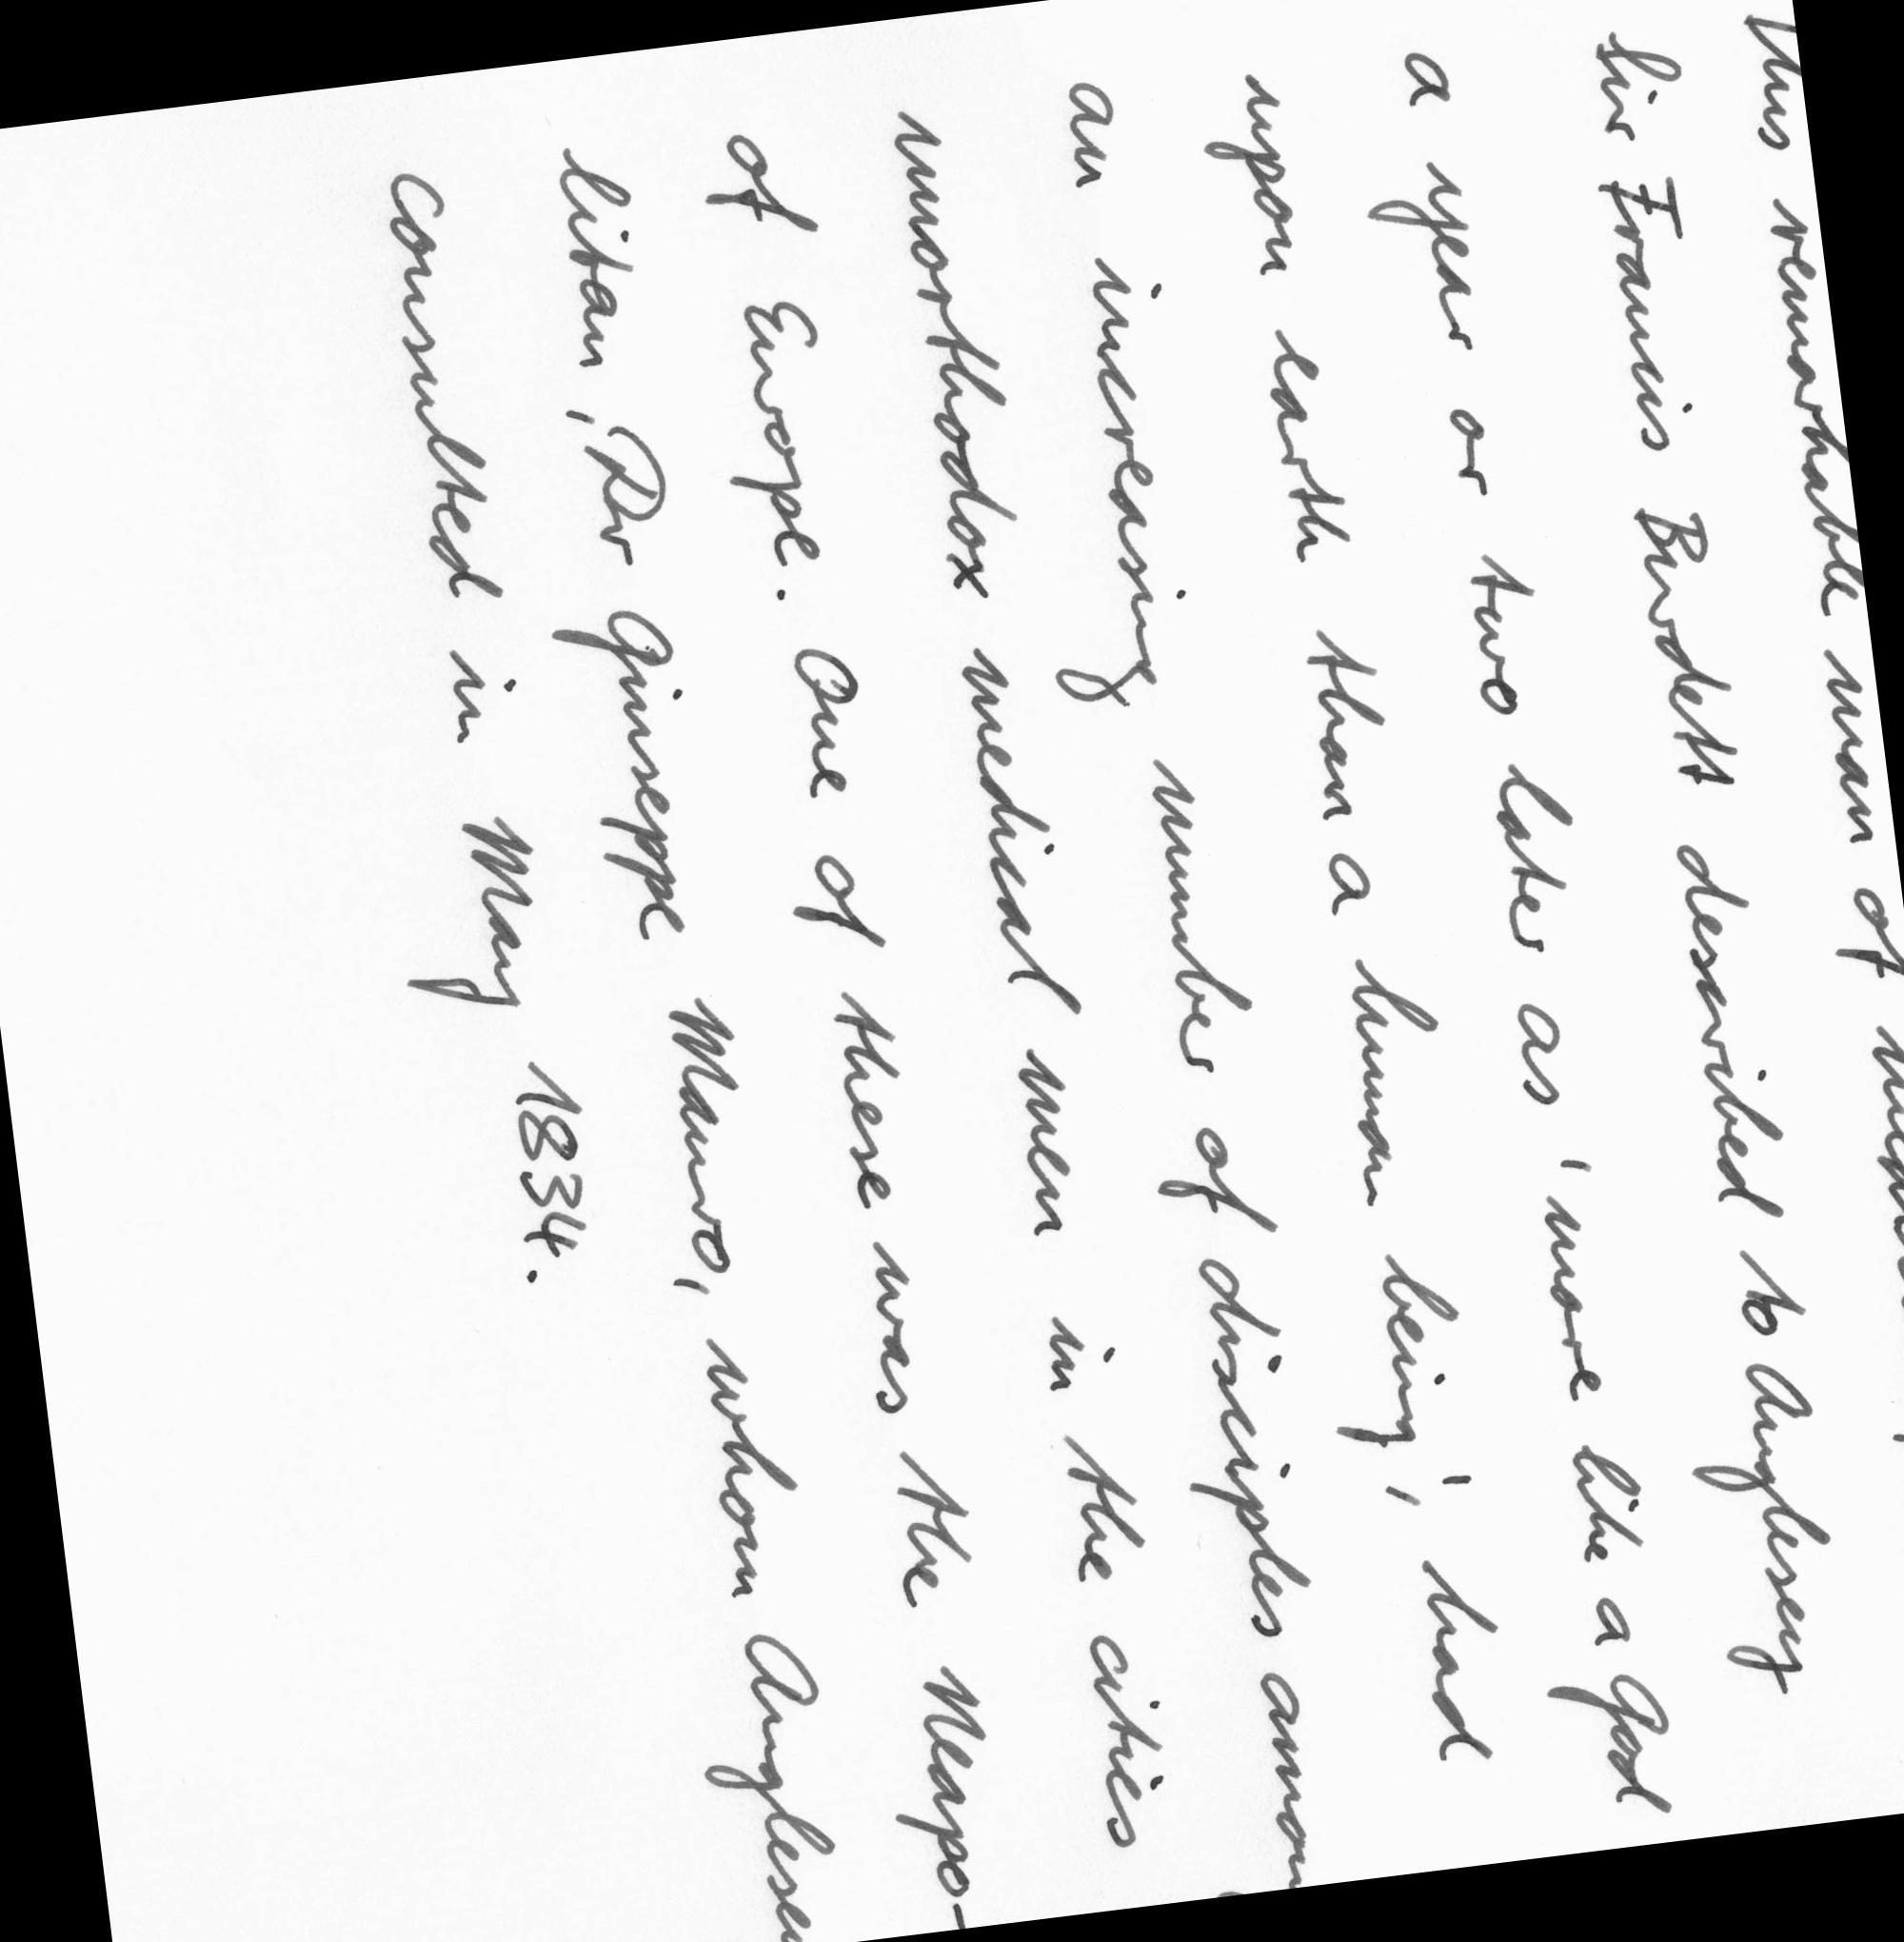 this remarkable man of
Sir Francis Burdett described to Anglesey
a year or two later as 'more like a God
upon earth than a human being', had
an increasing number of disciples
unorthodox medical men in the cities
of Europe. One of these was the Neapo-
litan, Dr Giuseppe Mauro, whom
consulted in May 1834.